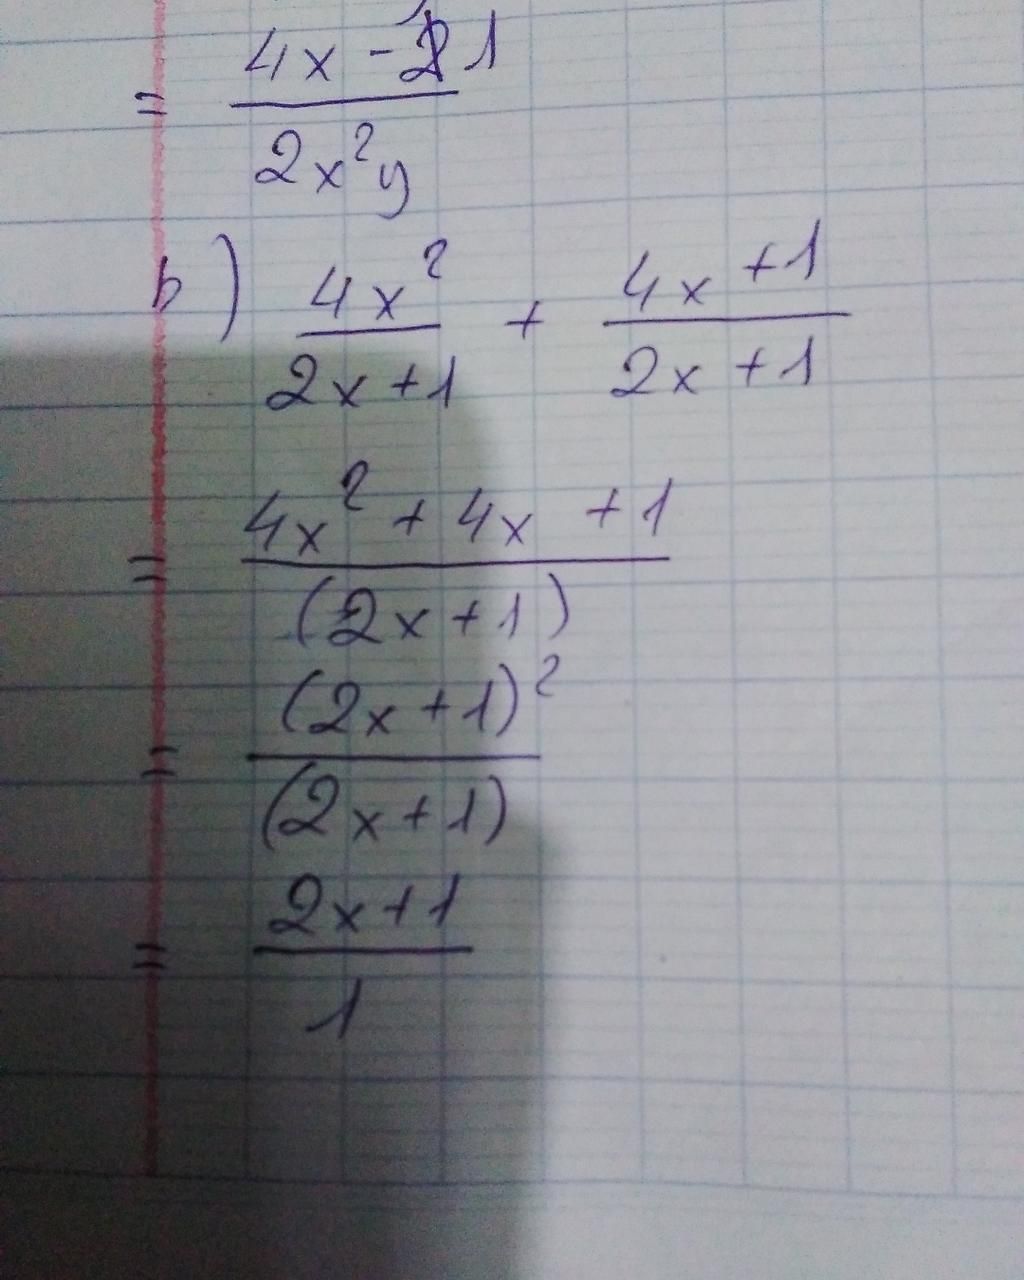 = (4x - 1)/(2x²y)
b) 4x²/(2x+1) + (4x+1)/(2x+1)
= (4x² + 4x + 1)/(2x+1)
= (2x+1)²/(2x+1)
= (2x+1)/1